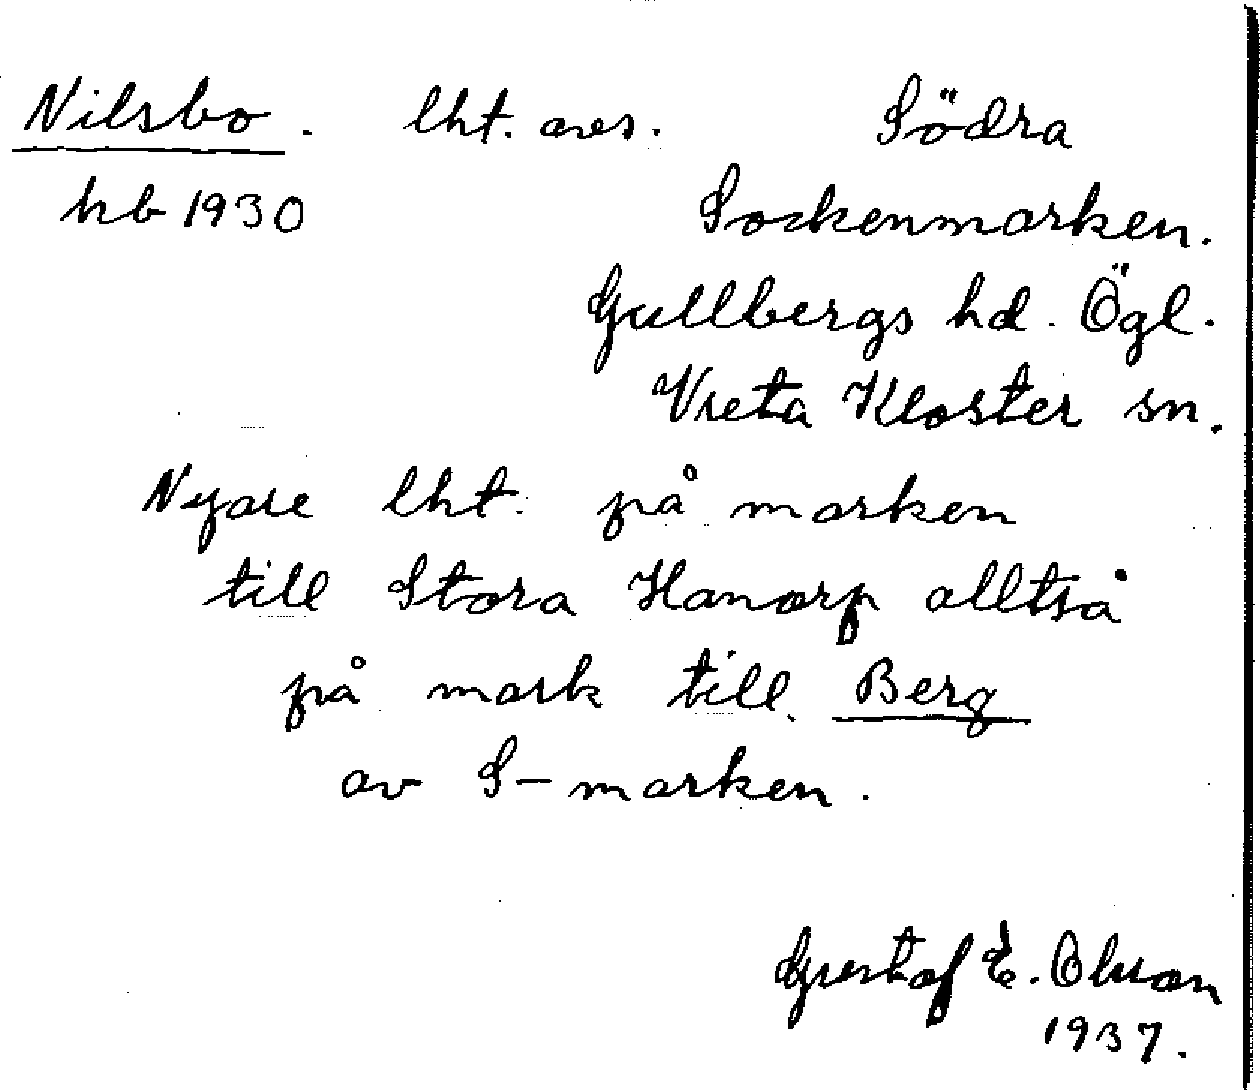 Nilsbo. lht. avs. Södra
hb 1930 Sockenmarken.
Gullbergs hd. Ögl.
Vreta Kloster sn.
Nyare lht. på marken
till Stora Hanorp alltså
på mark till Berg
av S-marken.
Gustaf E. Olsson
1937.